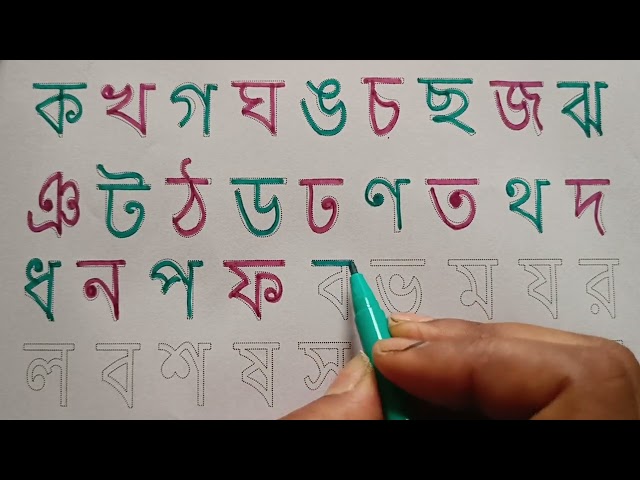 ক খ গ ঘ ঙ চ ছ জ ঝ
ঞ ট ঠ ড ঢ ণ ত থ দ
ধ ন প ফ ব ভ ম য র
ল ব শ ষ স